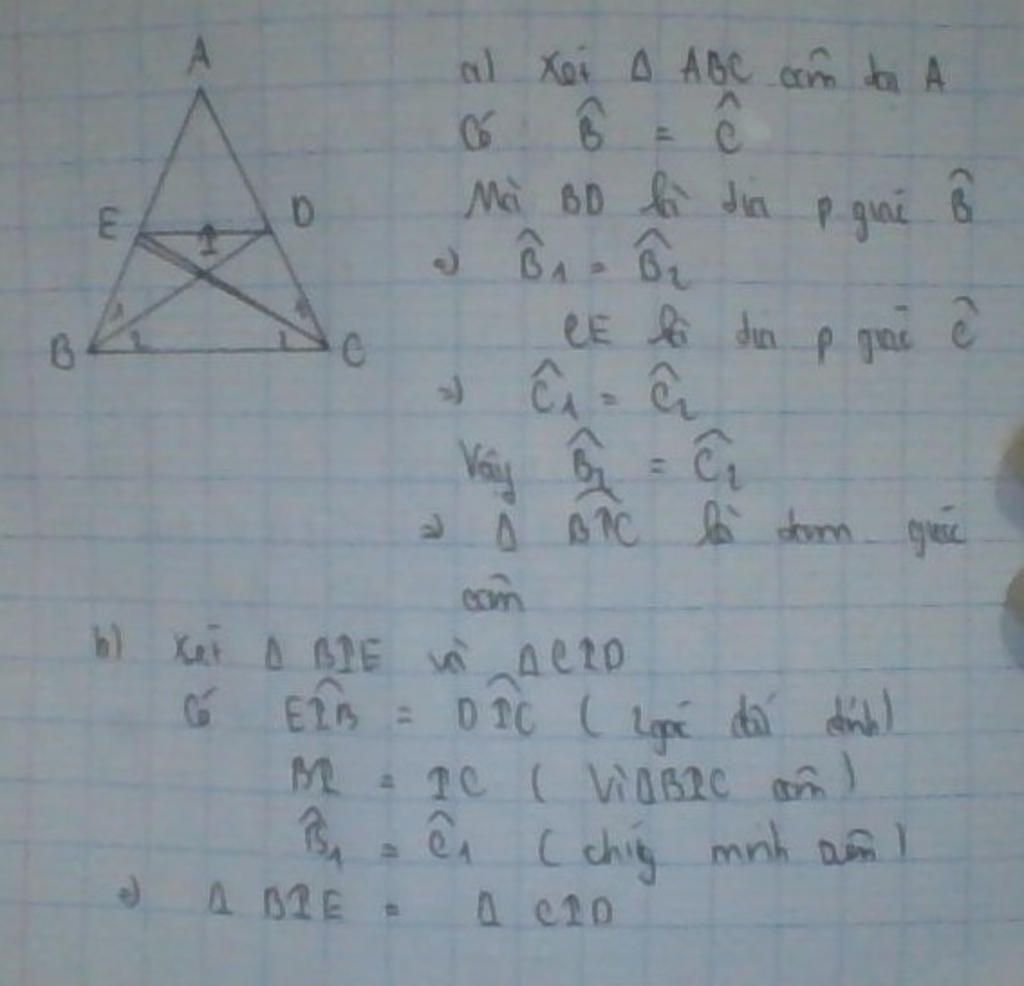 A
E
D
I
B
C
1
2
1
2
a) Xét Δ ABC cân tại A
Có B̂ = Ĉ
Mà BD là tia p giác B̂
=> B̂1 = B̂2
CE là tia p giác Ĉ
=> Ĉ1 = Ĉ2
Vậy B̂2 = Ĉ2
=> Δ BIC là tam giác
cân
b) Xét Δ BIE và Δ CID
Có EÎB = DÎC ( 2 góc đối đỉnh)
BI = IC ( Vì Δ BIC cân )
B̂1 = Ĉ1 ( chứng minh trên )
=> Δ BIE = Δ CID